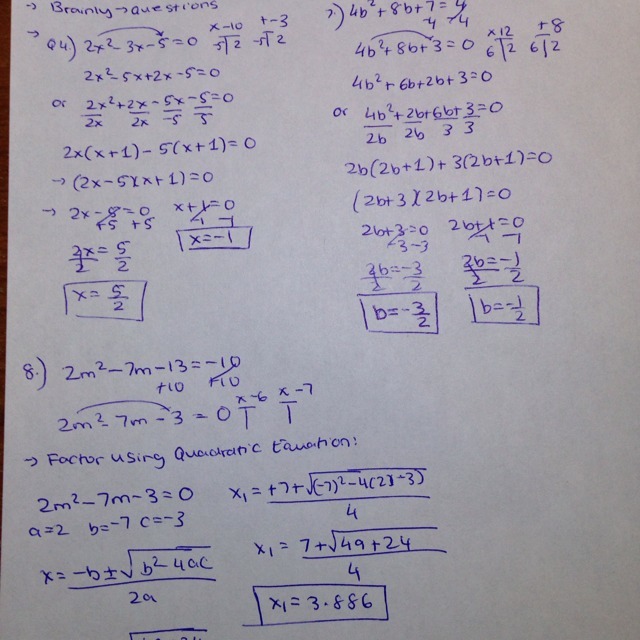 → Brainly → questions
→ Q4.) 2x² - 3x - 5 = 0   x -10   + -3
-5 | 2   -5 | 2
2x² - 5x + 2x - 5 = 0
or 2x² + 2x - 5x - 5 = 0
2x   2x   -5   5
2x(x+1) - 5(x+1) = 0
→ (2x-5)(x+1) = 0
→ 2x - 5 = 0   x + 1 = 0
+5 +5   -1 -1
2x = 5   x = -1
2   2
x = 5/2
7.) 4b² + 8b + 7 = 4
-4 -4
4b² + 8b + 3 = 0   x 12   + 8
6 | 2   6 | 2
4b² + 6b + 2b + 3 = 0
or 4b² + 2b + 6b + 3 = 0
2b   2b   3   3
2b(2b+1) + 3(2b+1) = 0
(2b+3)(2b+1) = 0
2b + 3 = 0   2b + 1 = 0
-3 -3   -1 -1
2b = -3   2b = -1
2   2   2   2
b = -3/2   b = -1/2
8.) 2m² - 7m - 13 = -10
+10   +10
2m² - 7m - 3 = 0   x -6   x -7
→ Factor using Quadratic Equation:
2m² - 7m - 3 = 0
a = 2   b = -7   c = -3
x = -b ± √b² - 4ac
2a
x₁ = +7 + √(-7)² - 4(2)(-3)
4
x₁ = 7 + √49 + 24
4
x₁ = 3.886